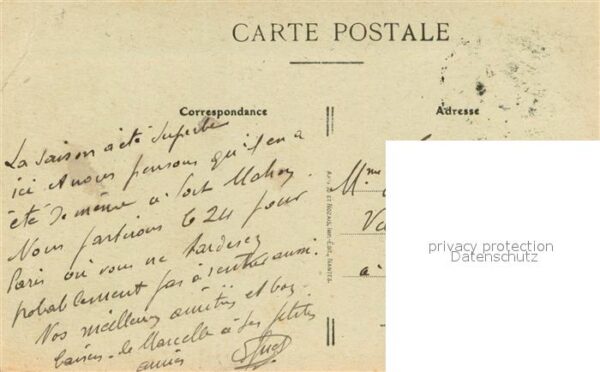 CARTE POSTALE
Correspondance
La saison a été superbe
ici et nous pensons qu'il en a
été de même à Port Mahon.
Nous partirons le 24 pour
Paris où vous ne tarderez
probablement pas à rentrer aussi.
Nos meilleures amitiés et bons
baisers de Marcelle à ses petites
amies
Adresse
Mme
à
privacy protection
Datenschutz